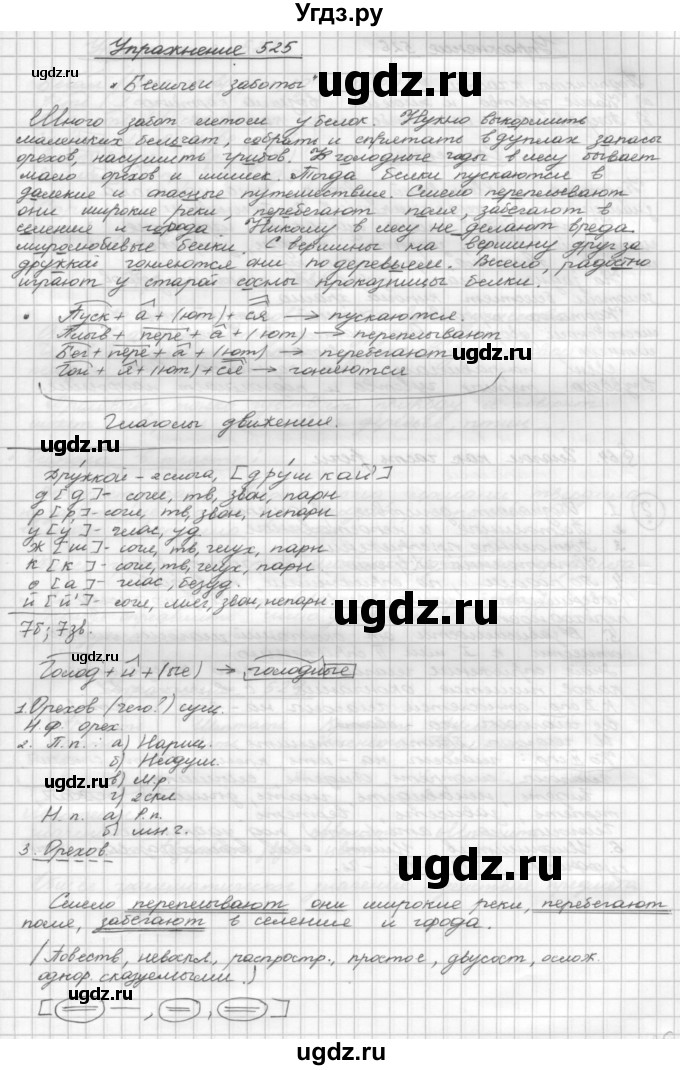 Угдз.ру
Упражнение 525
"Беличьи заботы"
Много забот летом у белок. Нужно выкормить
маленьких бельчат, собрать и спрятать в дуплах запасы
орехов, насушить грибов. В голодные годы в лесу бывает
мало орехов и шишек. Тогда белки пускаются в
далекие и опасные путешествия. Смело переплывают
они широкие реки, перебегают поля, забегают в
селения и города. Никому в лесу не делают вреда
миролюбивые белки. С вершины на вершину друг за
дружкой гоняются они по деревьям. Весело, радостно
играют у старой сосны проказницы белки.
Пуск + а + (ют) + ся → пускаются.
Плыв + пере + а + (ют) → переплывают
Бег + пере + а + (ют) → перебегают
Гон + я + (ют) + ся → гоняются
Глаголы движения.
Дружкой - 2 слога, [друшкай']
д [д] - согл, тв, звон, парн
р [р] - согл, тв, звон, непарн.
у [у] - глас, уд.
ж [ш] - согл, тв, глух, парн
к [к] - согл, тв, глух, парн.
о [а] - глас, безуд.
й [й'] - согл, мягк, звон, непарн.
7б; 7зв.
Голод + н + (ые) → голодные
1. Орехов (чего?) сущ.
Н.ф. орех.
2. П.п.: а) Нариц.
б) Неодуш.
в) м.р.
г) 2скл
Н.п. а) Р.п.
б) мн.ч.
3. Орехов.
Смело переплывают они широкие реки, перебегают
поля, забегают в селения и города.
(Повеств, невоскл, распростр., простое, двусост, ослож.
однор. сказуемыми.)
[ , , ]
ugdz.ru
ugdz.ru
ugdz.ru
ugdz.ru
ugdz.ru
ugdz.ru
ugdz.ru
ugdz.ru
ugdz.ru
ugdz.ru
ugdz.ru
ugdz.ru